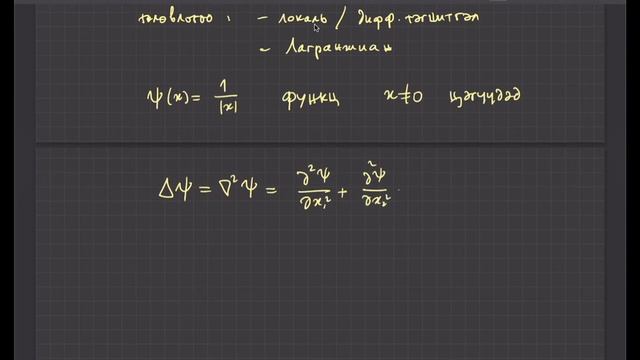 төлөвлөгөө : – локаль / дифф. тэгшитгэл
– Лагранжиан
ψ(x) = 1/|x| функц x ≠ 0 цэгүүдэд
Δψ = ∇²ψ = ∂²ψ/∂x₁² + ∂²ψ/∂x₂²